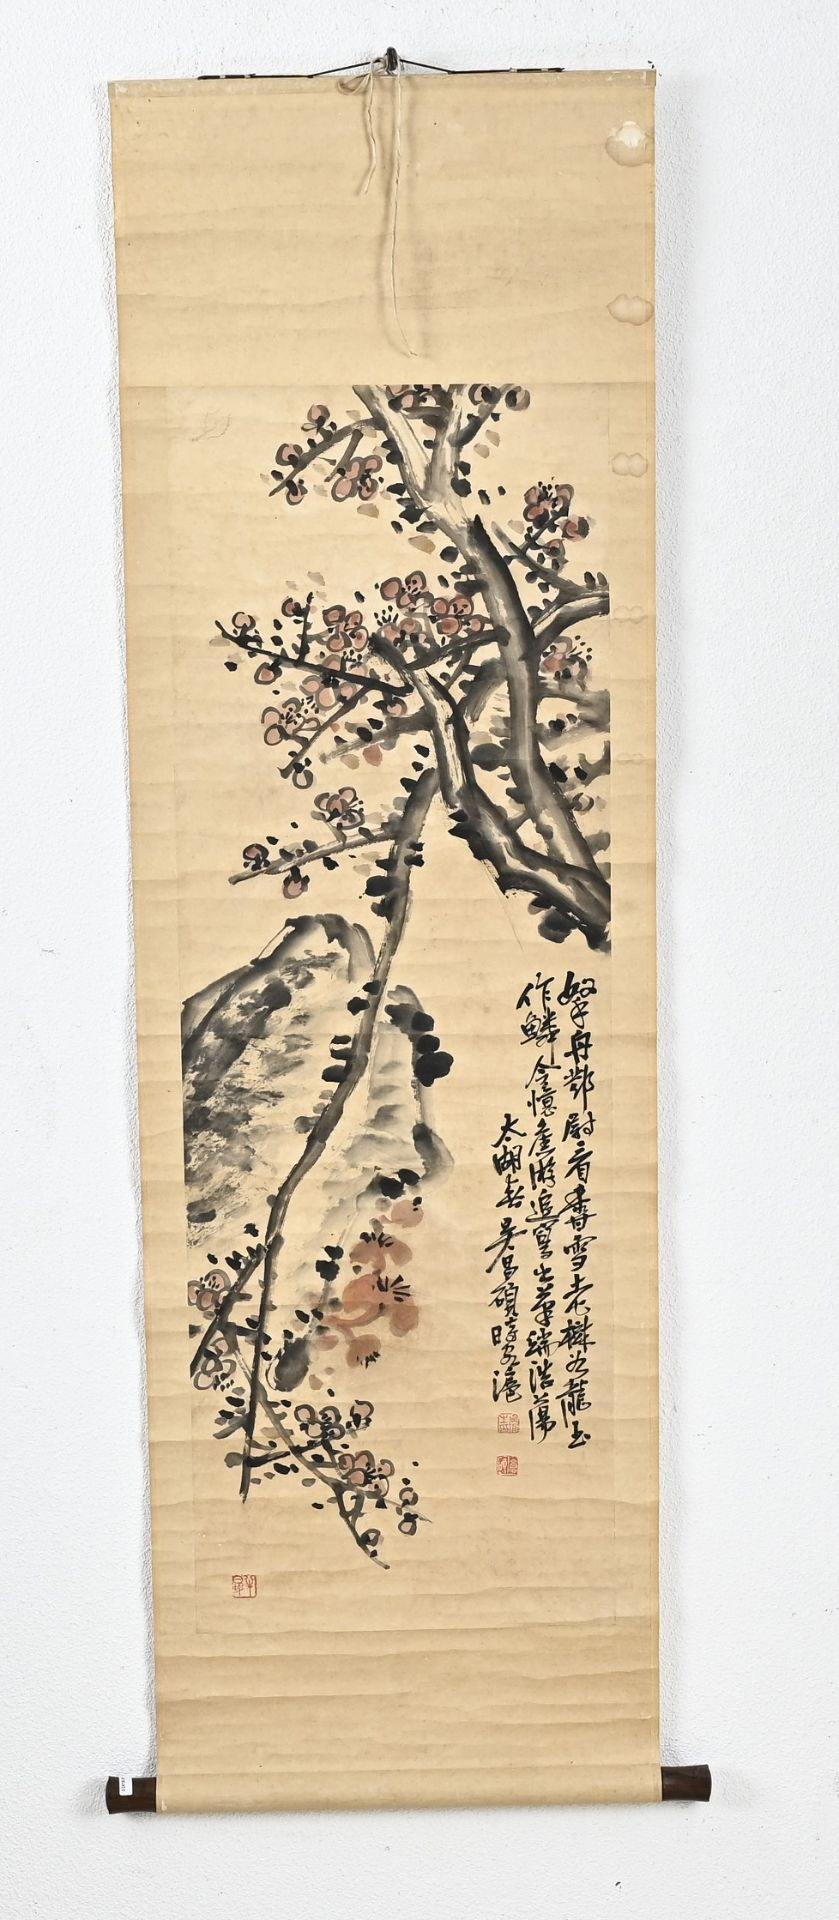 拏舟鄧尉看香雪老樹如龍玉
作鱗今憶舊游追寫出筆端浩蕩
太湖春吳昌碩時客滬